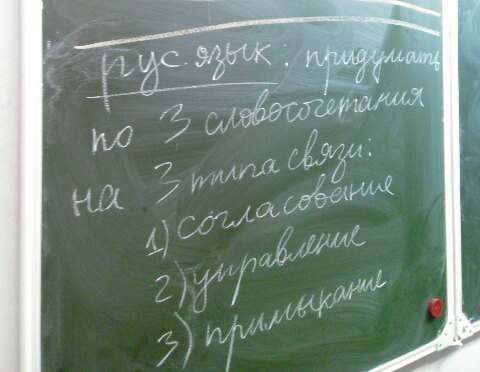 рус. язык: придумать
по 3 словосочетания
на 3 типа связи:
1) согласование
2) управление
3) примыкание